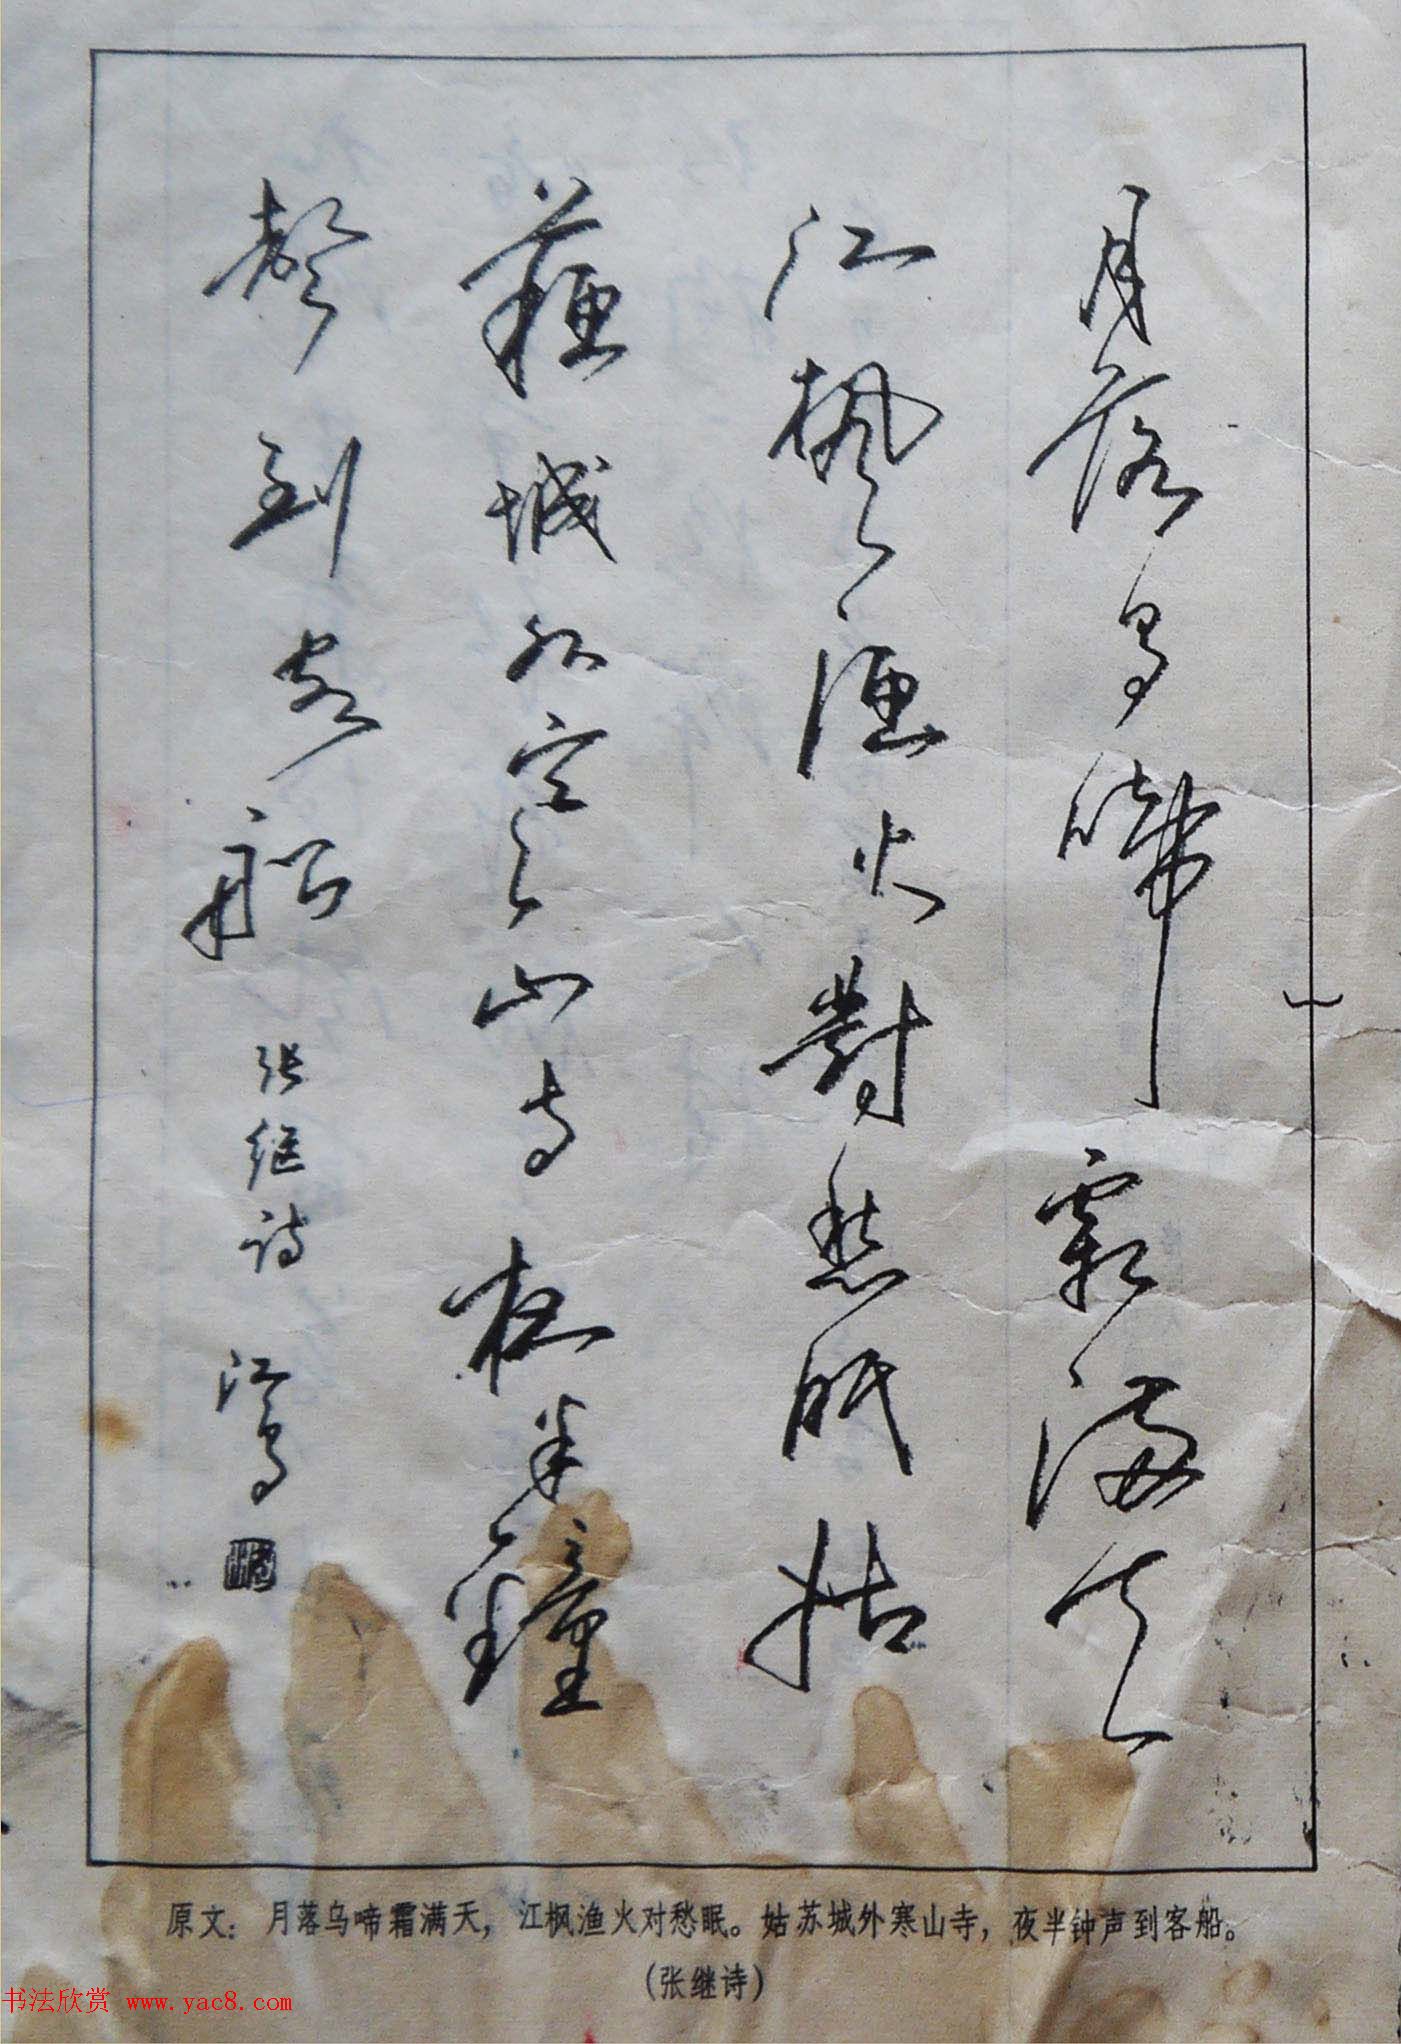 月落乌啼霜满天
江枫渔火對愁眠姑
蘇城外寒山寺夜半鐘
聲到客船
张继诗 江鸟
原文：月落乌啼霜满天，江枫渔火对愁眠。姑苏城外寒山寺，夜半钟声到客船。
（张继诗）
书法欣赏 www.yac8.com